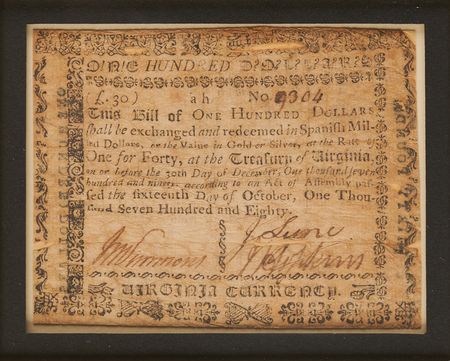 ONE HUNDRED DOLLARS
(£.30) a h No 9304
THIS Bill of ONE HUNDRED DOLLARS
shall be exchanged and redeemed in Spanish Mil-
led Dollars, or the Value in Gold or Silver, at the Rate of
One for Forty, at the Treasury of Virginia,
on or before the 30th Day of December, One thousand seven
hundred and ninety, according to an Act of Assembly pas-
sed the sixteenth Day of October, One Thou-
sand Seven Hundred and Eighty.
Simmons
VIRGINIA CURRENCY.